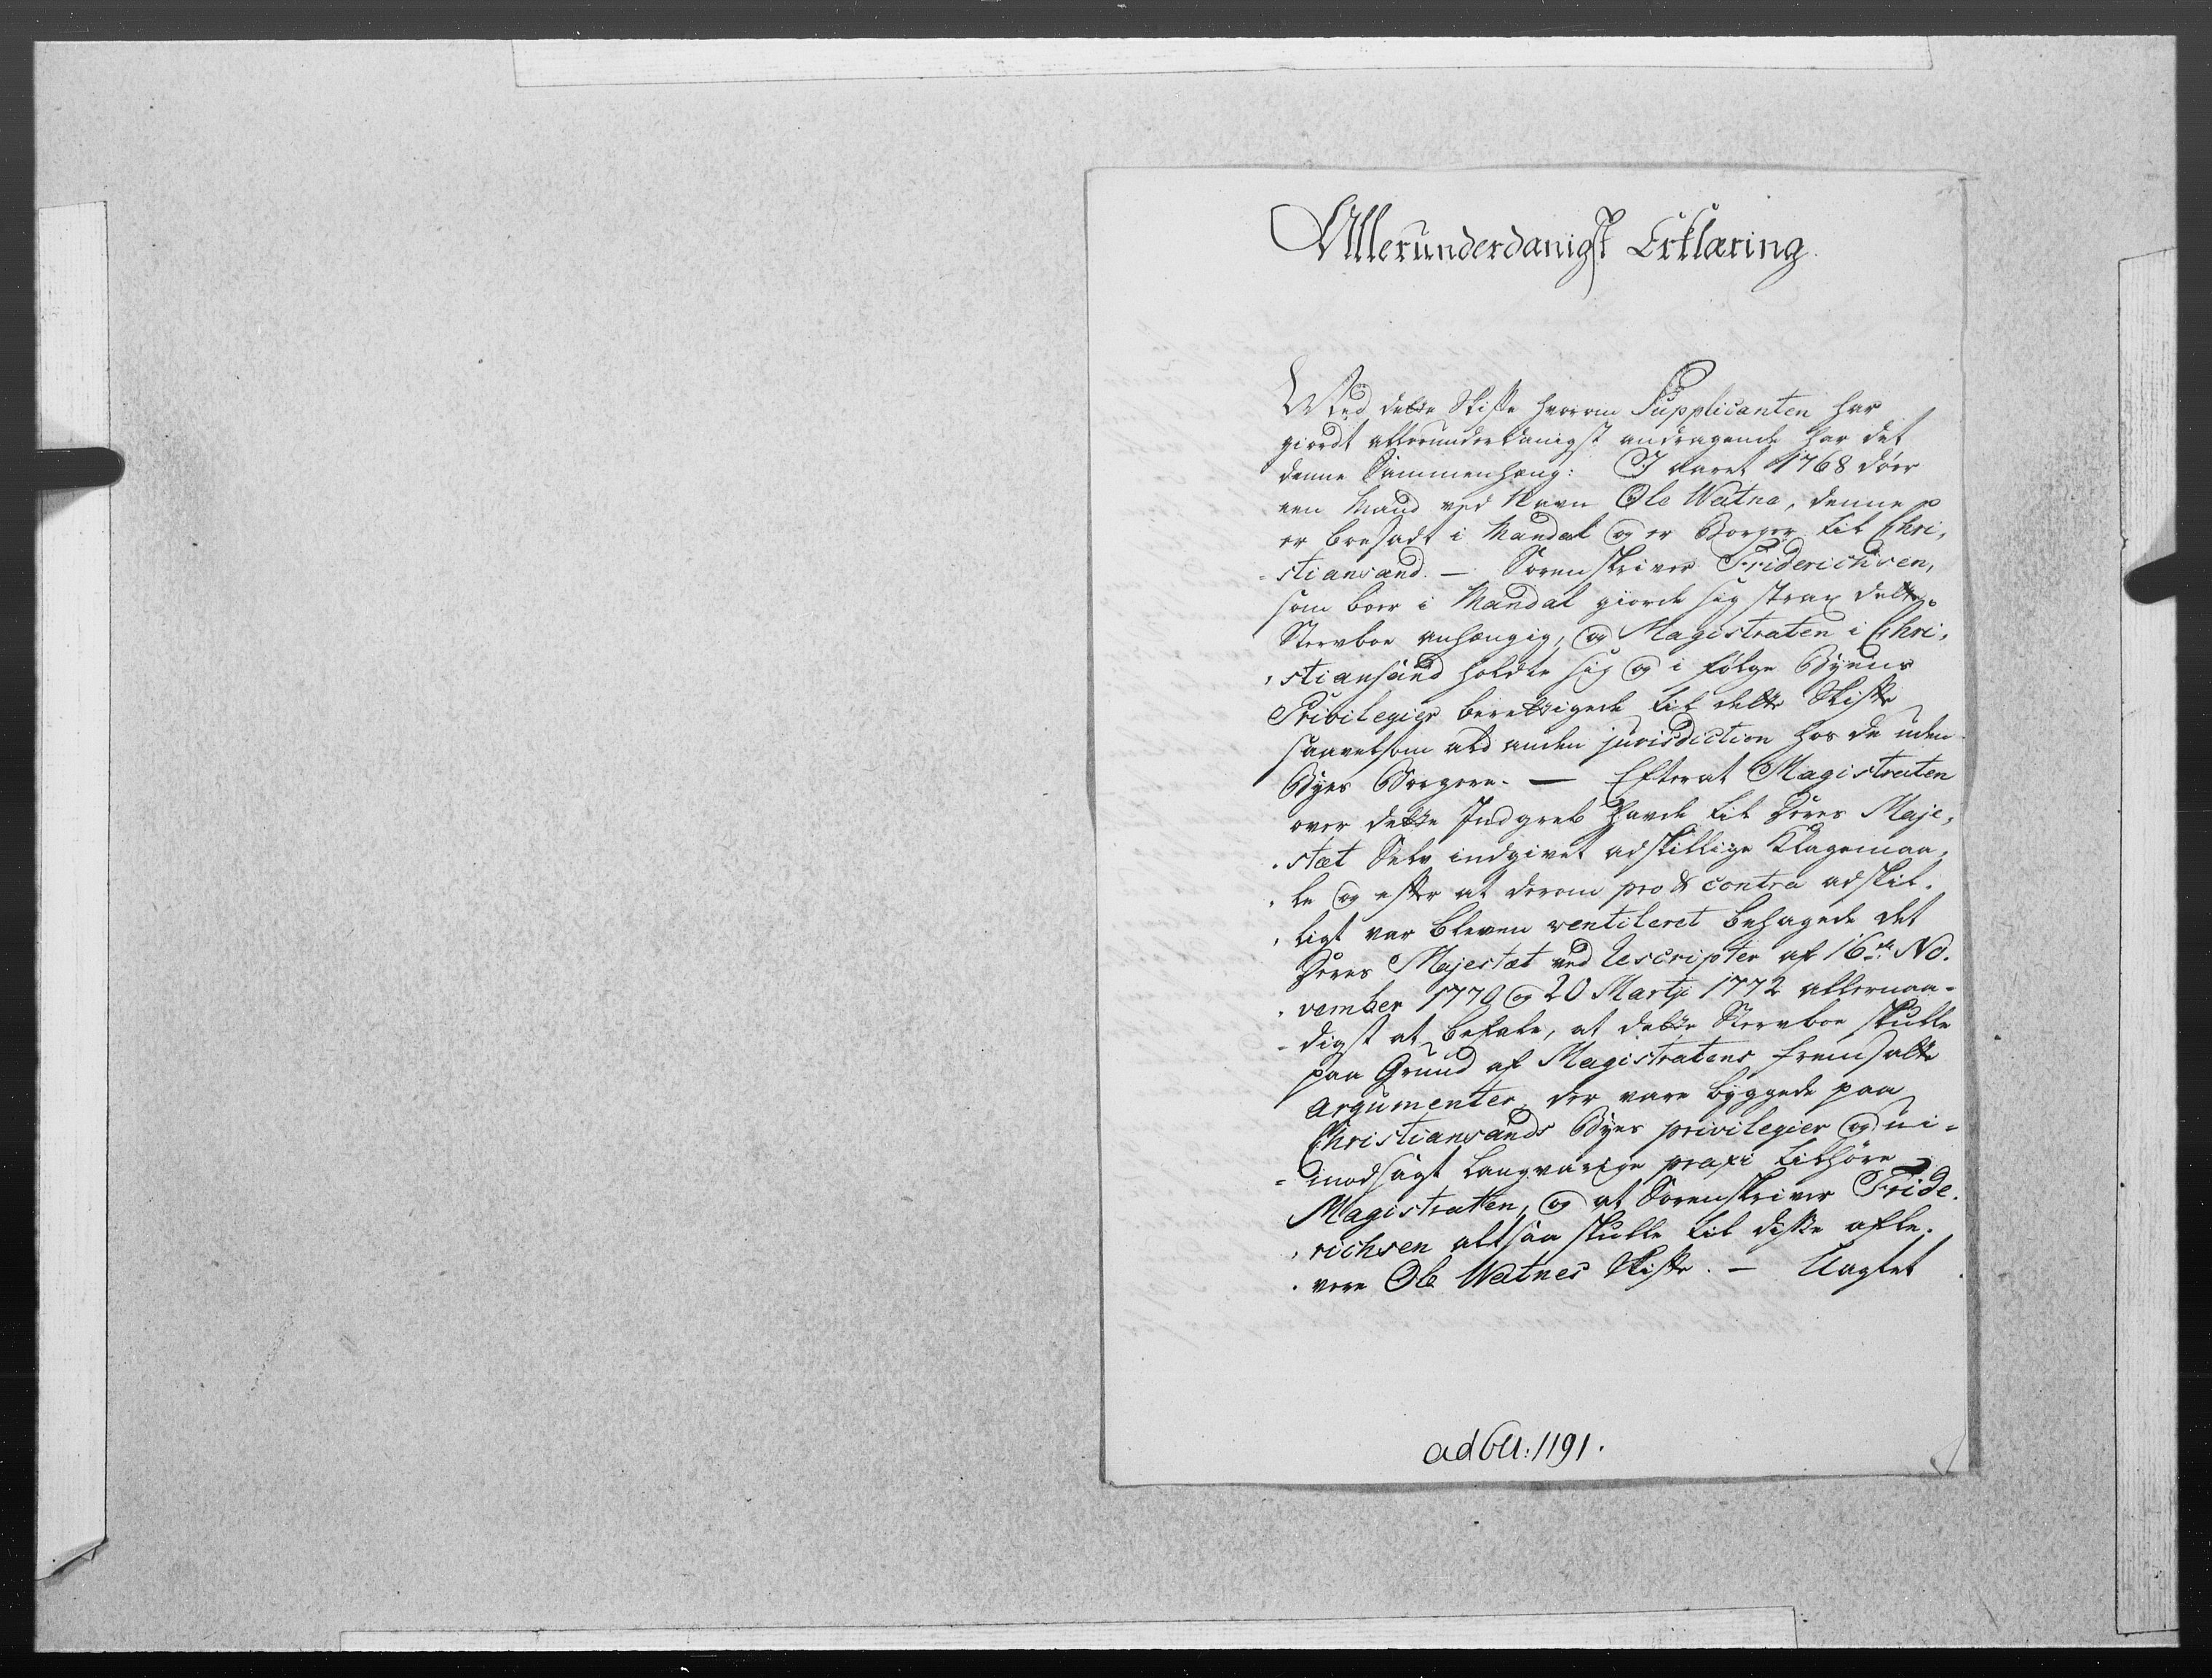 Allerunderdanigst Erklæring.
Med dette Skifte hvorom Supplicanten har
giordt allerunderdanigst andragende har det
denne Sammenhæng: I Aaret 1768 döer
een Mand ved Navn Ole Watne, denne
er boesadt i Mandal og er Borger til Chri,
-stiansand. — Sorenskriver Friderichsen,
som boer i Mandal giorde sig strax dette
Stervboe anhængig, og Magistraten i Chri,
,stiansand holdte sig og i følge Byens
Privilegier berettigede til dette Skifte
saavelsom all anden jurisdiction hos de uden
Byes Borgere. — Efterat Magistraten
over dette Indgreb havde til Deres Maje,
.stæt Selv indgivet adskillige Klagemaa,
,le og efter at derom pro & contra adskil.
,ligt var bleven ventileret behagede det
Deres Majestæt ved Rescripter af 16de No.
,vember 1770 og 20 Martji 1772 allernaa-
-digst at befale, at dette Stervboe skulle
paa Grund af Magistratens fremsatte
Argumenter, der vare byggede paa
Christiansands Byes privilegier og ui-
-imodsagt langvarige praxi tilhöre
Magistraten, og at Sorenskriver Fride.
,richsen altsaa skulle til disse afle.
.vere Ole Watnes Skifte. — Uagtet
ad 1191.